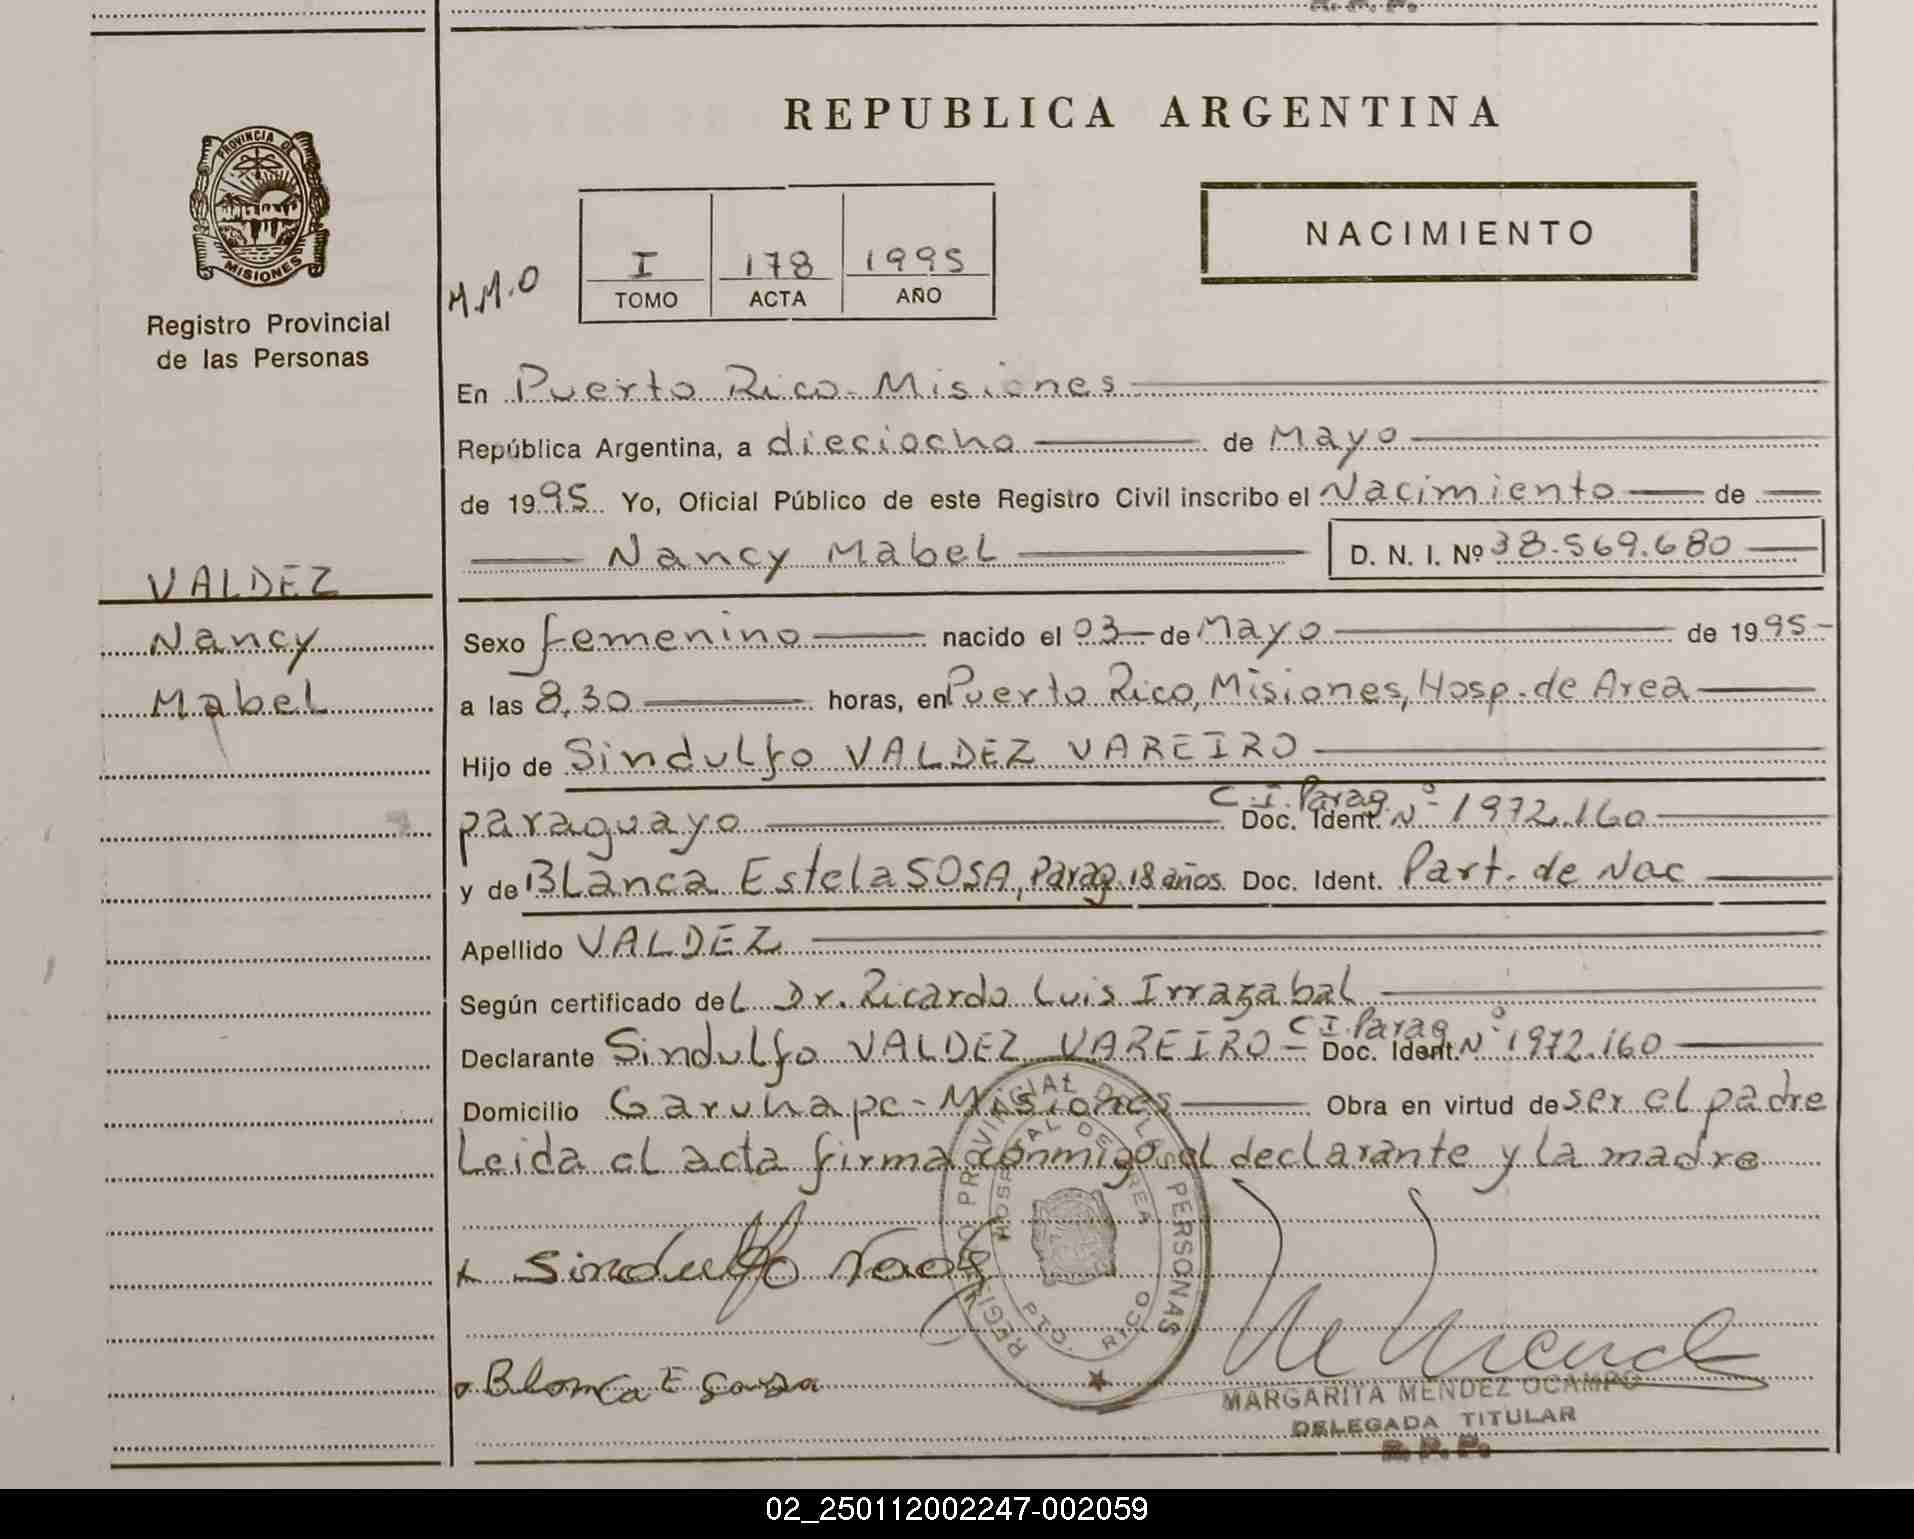 R. P. P.
REPUBLICA ARGENTINA
PROVINCIA DE
MISIONES
Registro Provincial
de las Personas
M.M.O
I 178 1995
TOMO ACTA AÑO
NACIMIENTO
En Puerto Rico - Misiones
República Argentina, a dieciocho de Mayo
de 1995 Yo, Oficial Público de este Registro Civil inscribo el Nacimiento de
Nancy Mabel D. N. I. Nº 38.569.680
VALDEZ
Nancy
Mabel
Sexo femenino nacido el 03 de Mayo de 1995
a las 8,30 horas, en Puerto Rico, Misiones, Hosp. de Area
Hijo de Sindulfo VALDEZ VAREIRO
paraguayo Doc. Ident. C.I. Parag Nº 1972.160
y de Blanca Estela SOSA, Parag. 18 años Doc. Ident. Part. de Nac
Apellido VALDEZ
Según certificado del Dr. Ricardo Luis Irrazabal
Declarante Sindulfo VALDEZ VAREIRO - Doc. Ident. C I. Parag Nº 1972.160
Domicilio Garuhape - Misiones Obra en virtud de ser el padre
Leida el acta firma conmigo el declarante y la madre
REGISTRO PROVINCIAL DE LAS PERSONAS
HOSPITAL DE AREA
PTO. RICO
Sindulfo
Blanca E Sosa
MARGARITA MENDEZ OCAMPO
DELEGADA TITULAR
R. P. P.
02_250112002247-002059